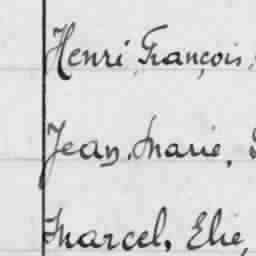 Henri, François,
Jean, Marie,
Marcel, Elie,